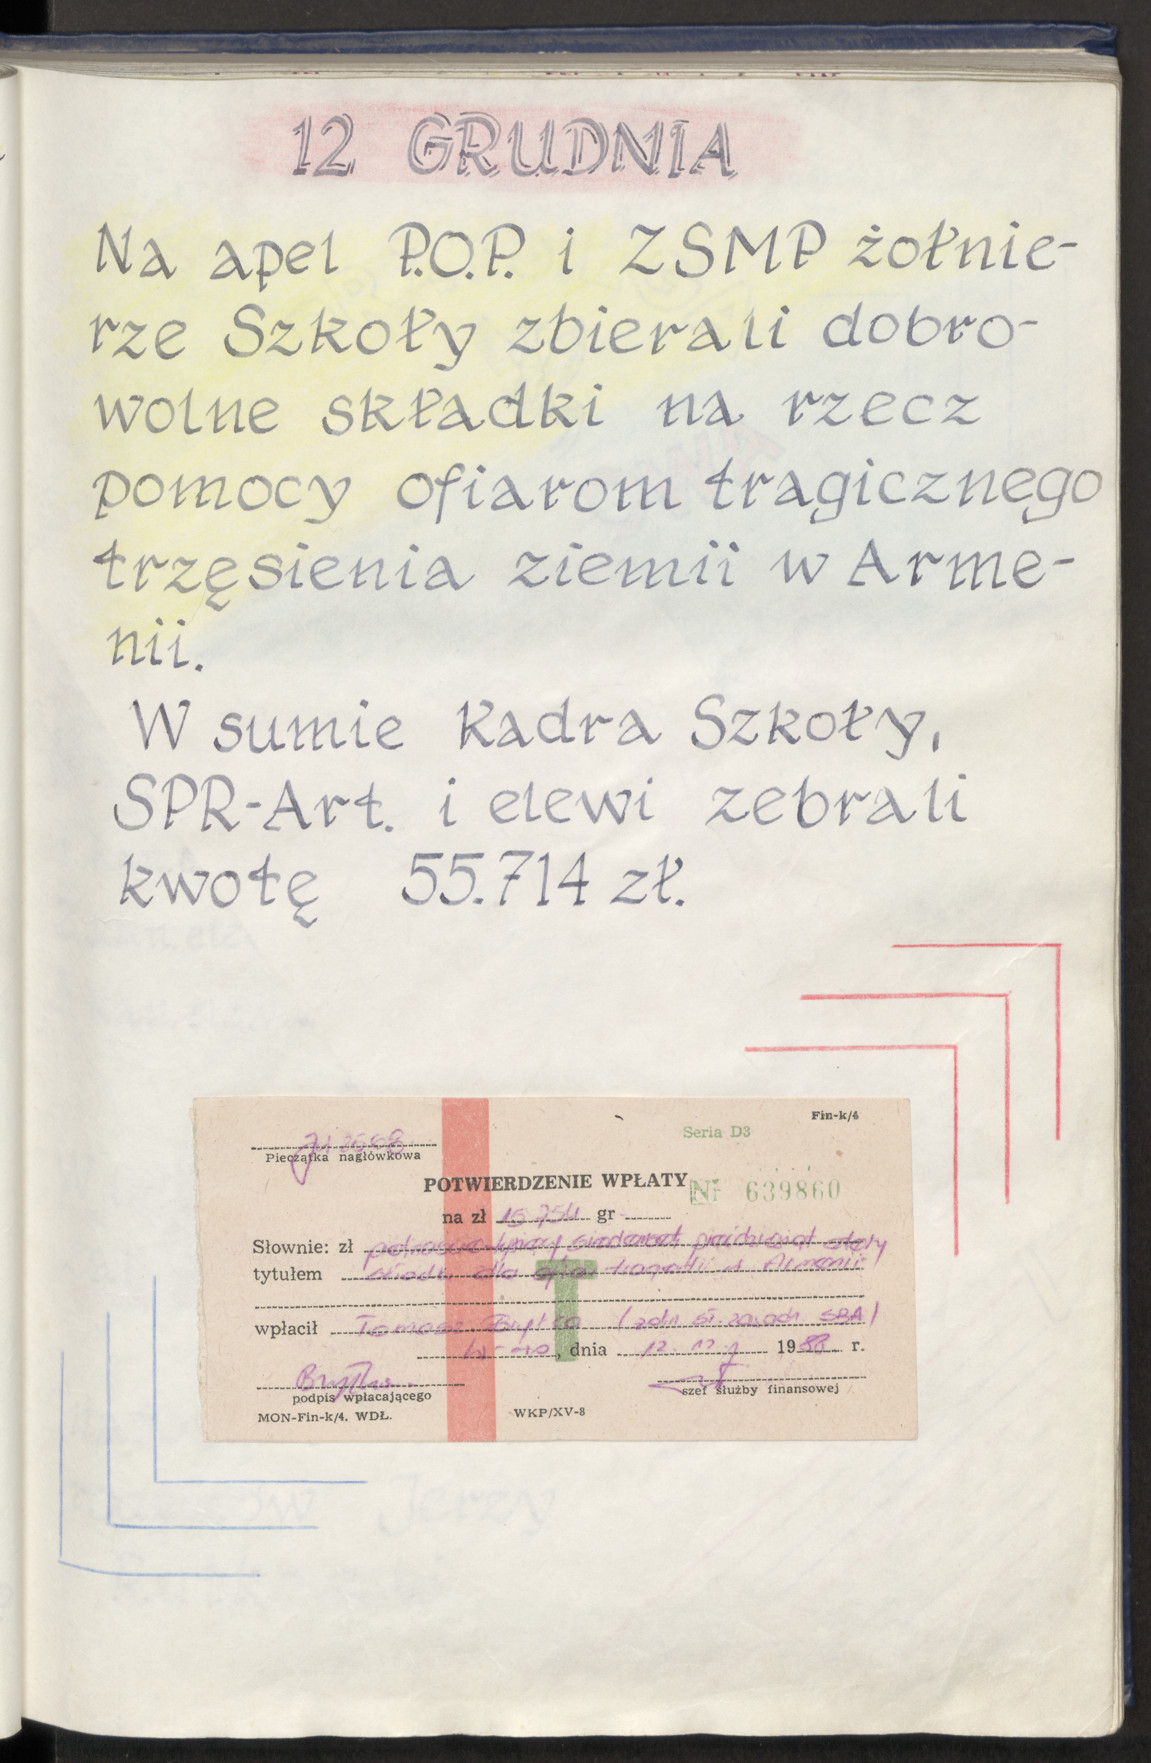 12 GRUDNIA
Na apel P.O.P. i ZSMP żołnie-
rze Szkoły zbierali dobro-
wolne składki na rzecz
pomocy ofiarom tragicznego
trzęsienia ziemii w Arme-
nii.
W sumie Kadra Szkoły,
SPR-Art. i elewi zebrali
kwotę 55.714 zł.
Fin-k/4
Seria D3
Pieczątka nagłówkowa
POTWIERDZENIE WPŁATY Nr 639860
na zł 15 754 gr
Słownie: zł siedemset pięćdziesiąt cztery
tytułem dla tragedii w Armenii
wpłacił Tomasz
, dnia 12. 12 1988 r.
podpis wpłacającego
szef służby finansowej
MON-Fin-k/4. WDŁ.
WKP/XV-8